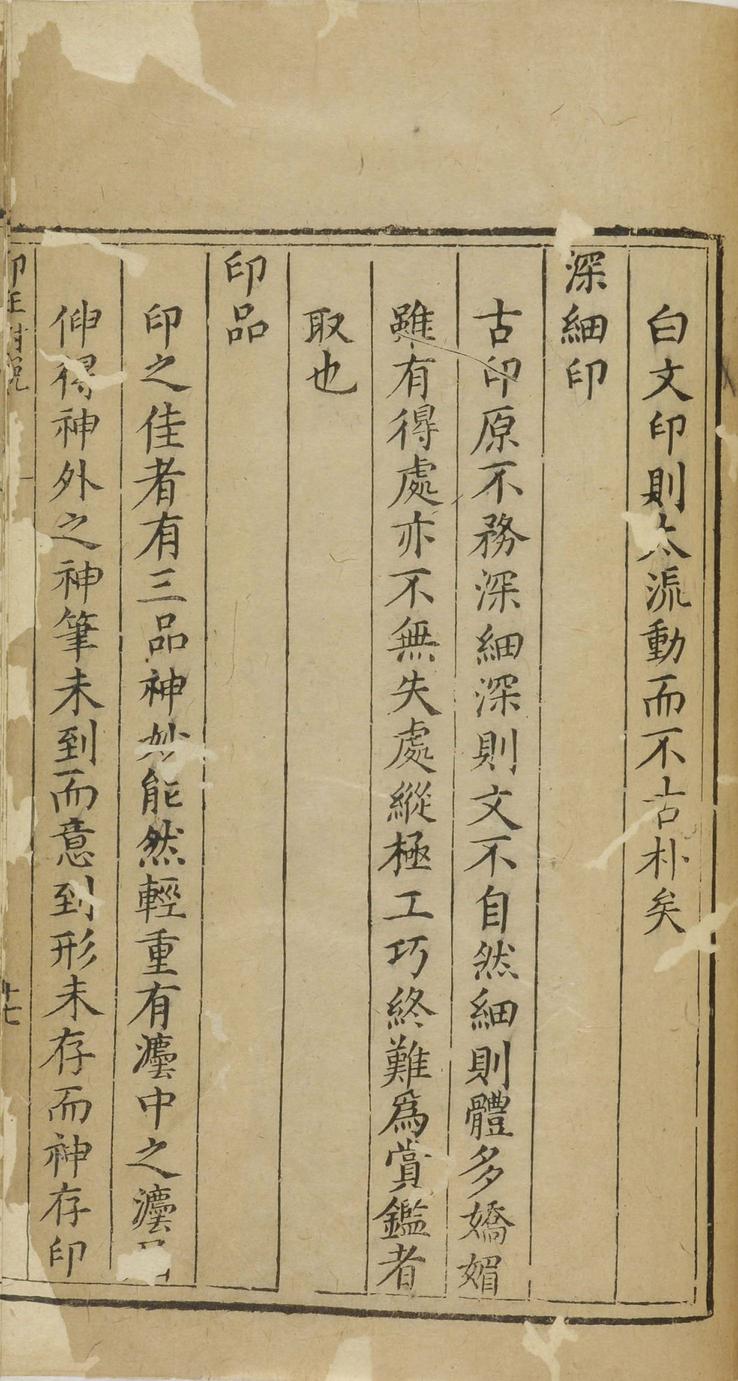 白文印則太流動而不古朴矣
深細印
古印原不務深細深則文不自然細則體多嬌媚
雖有得處亦不無失處縱極工巧終難爲賞鑑者
取也
印品
印之佳者有三品神妙能然輕重有灋中之灋
伸得神外之神筆未到而意到形未存而神存印
十七